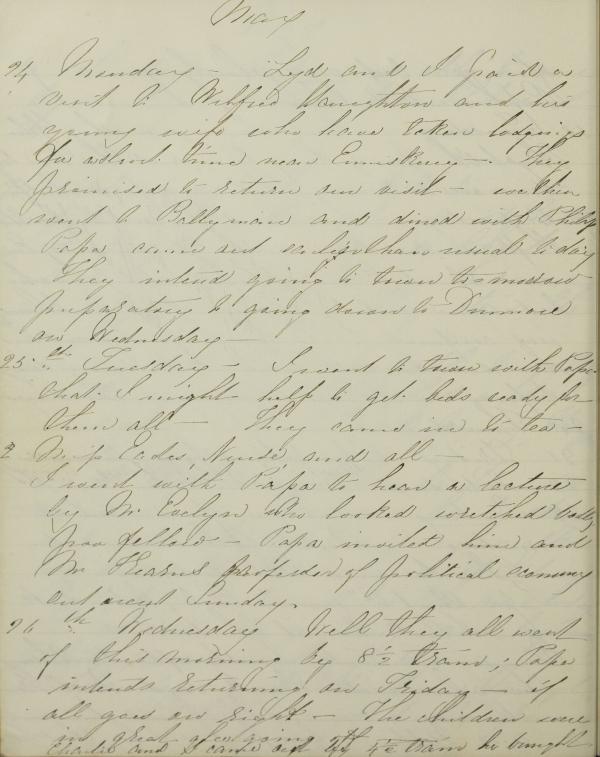 May
24 Monday – Lyd and I paid a
visit to Wilfred Haughton and his
young wife who have taken lodgings
for a short time near Enniskerry – They
promised to return our visit – we then
went to Ballymane and dined with Philip
Papa came out earlier than usual to day
They intend going to town to=morrow
preparatory to going down to Dunmore
on Wednesday –
25th Tuesday – I went to town with Papa
that I might help to get beds ready for
them all – They came in to tea –
Miss Eades, Nurse, and all –
I went with Papa to hear a lecture
by Mr Evelyn who looked wretched badly
poor fellow – Papa invited him and
Mr Hearns professor of political economy
out next Sunday.
26th Wednesday Well they all went
of this morning by 8½ train; Papa
intends returning on Friday – if
all goes on right – The children were
in great glee going off
Charlie and I came out by 4½ train he brought